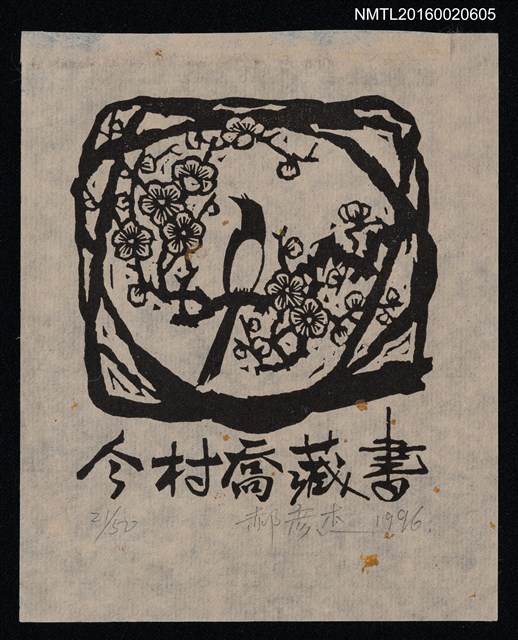 NMTL20160020605
今村喬藏書
21/50 郝彦杰 1996.